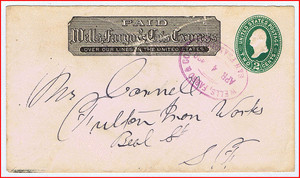 PAID
Wells Fargo & Co's Express
OVER OUR LINES IN THE UNITED STATES
UNITED STATES POSTAGE
TWO 2 CENTS
WELLS, FARGO & CO
APR
4
Mr Connell
Fulton Iron Works
Beal St
S. F.